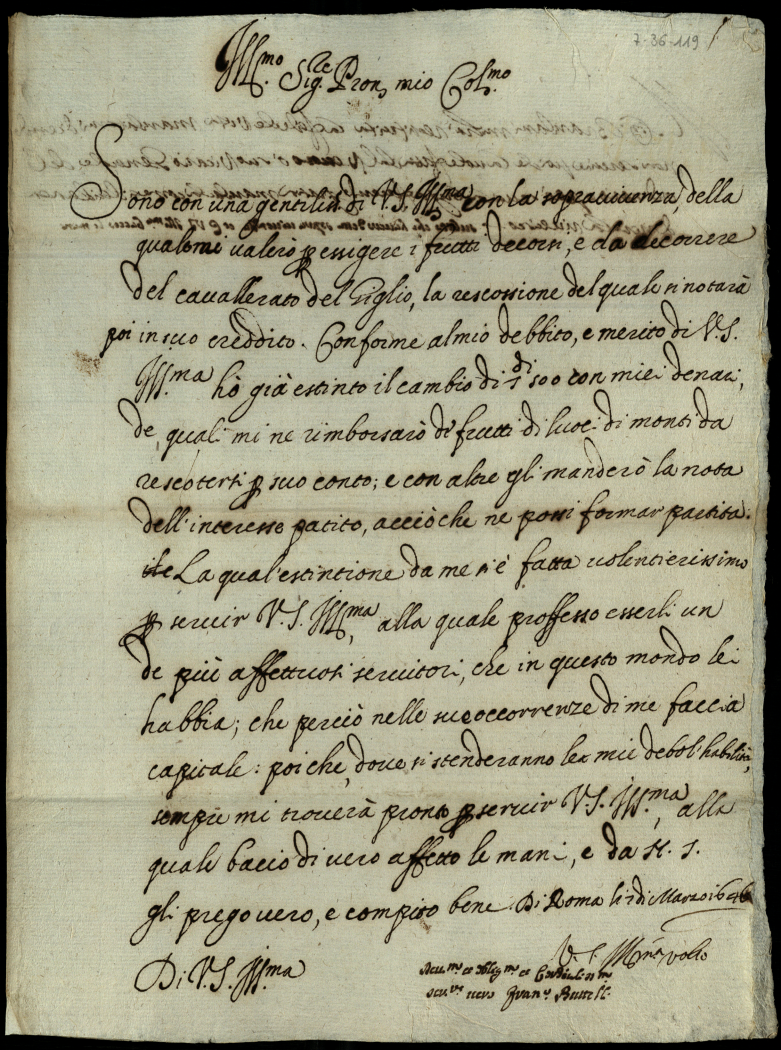 7-36-119
Ill.mo Sig.re Pron. mio Col.mo
Sono con una gentiliss. di V.S. Ill.ma con la sopravivenza, della
quale mi valerò p essigere i frutti decorsi, e da decorrere
del cavallerato del Giglio, la rescossione del quale si notarà
poi in suo creddito. Conforme al mio debbito, e merito di V.S.
Ill.ma hò già estinto il cambio di 500 con miei denari,
de, quali mi ne rimborsarò di frutti di luoci di monti da
rescotersi p suo conto; e con altre gli manderò la nota
dell'interesso patito, acciò che ne possi formar partita.
La qual'estintione da me s'è fatta volentierissimo
p servir V.S. Ill.ma, alla quale proffesso esserli un
de più affettuosi servitori, che in questo mondo lei
habbia; che perciò nelle sue occorrenze di me faccia
capitale: poi che, dove si stenderanno le mie debol'habilità,
sempre mi troverà pronto p servir V.S. Ill.ma, alla
quale bacio di vero affetto le mani, e da N. S.
gli prego vero, e compito bene. Di Roma li di Marzo 1646
V. S. Ill.ma volti
Di V.S. Ill.ma